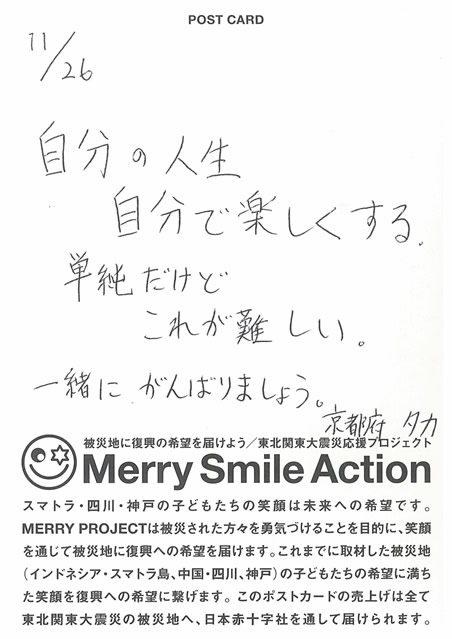 POST CARD
11/26
自分の人生
自分で楽しくする.
単純だけど
これが難しい。
一緒にがんばりましょう。
京都府 タカ
被災地に復興の希望を届けよう/東北関東大震災応援プロジェクト
Merry Smile Action
スマトラ・四川・神戸の子どもたちの笑顔は未来への希望です。
MERRY PROJECTは被災された方々を勇気づけることを目的に、笑顔
を通じて被災地に復興への希望を届けます。これまでに取材した被災地
(インドネシア・スマトラ島、中国・四川、神戸)の子どもたちの希望に満ち
た笑顔を復興への希望に繋げます。このポストカードの売上げは全て
東北関東大震災の被災地へ、日本赤十字社を通して届けられます。